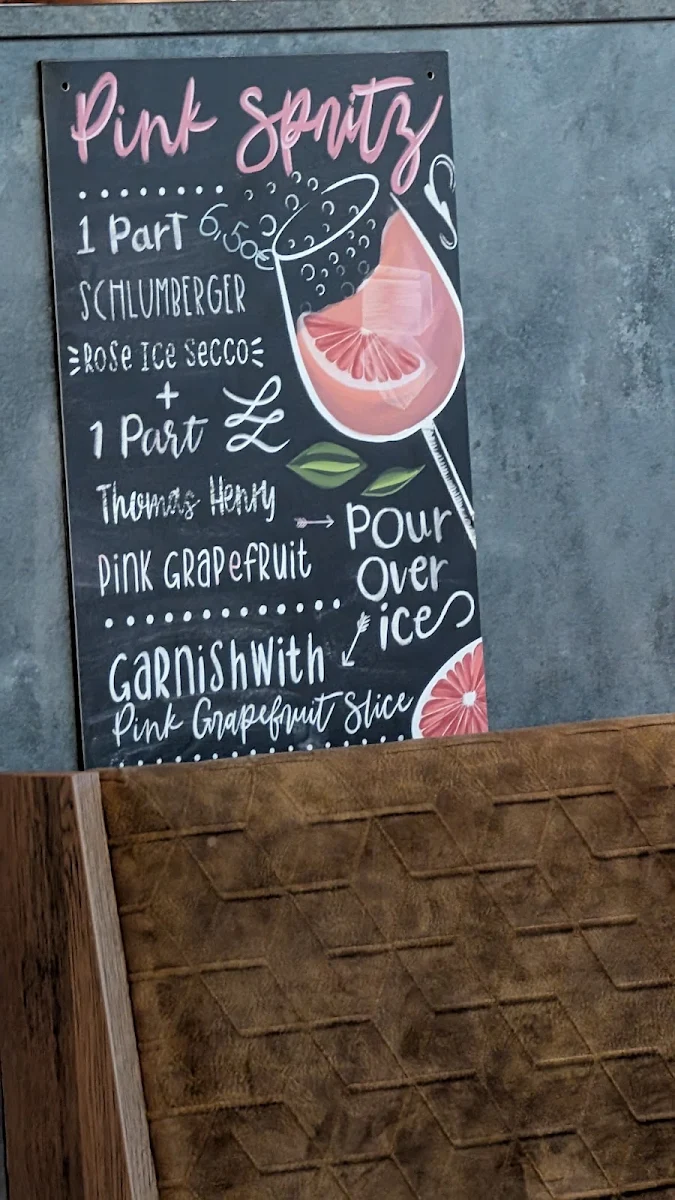 Pink Spritz
1 Part 6,50€
SCHLUMBERGER
Rose Ice Secco
+
1 Part
Thomas Henry
Pink Grapefruit
Pour
Over
ice
Garnish With
Pink Grapefruit Slice